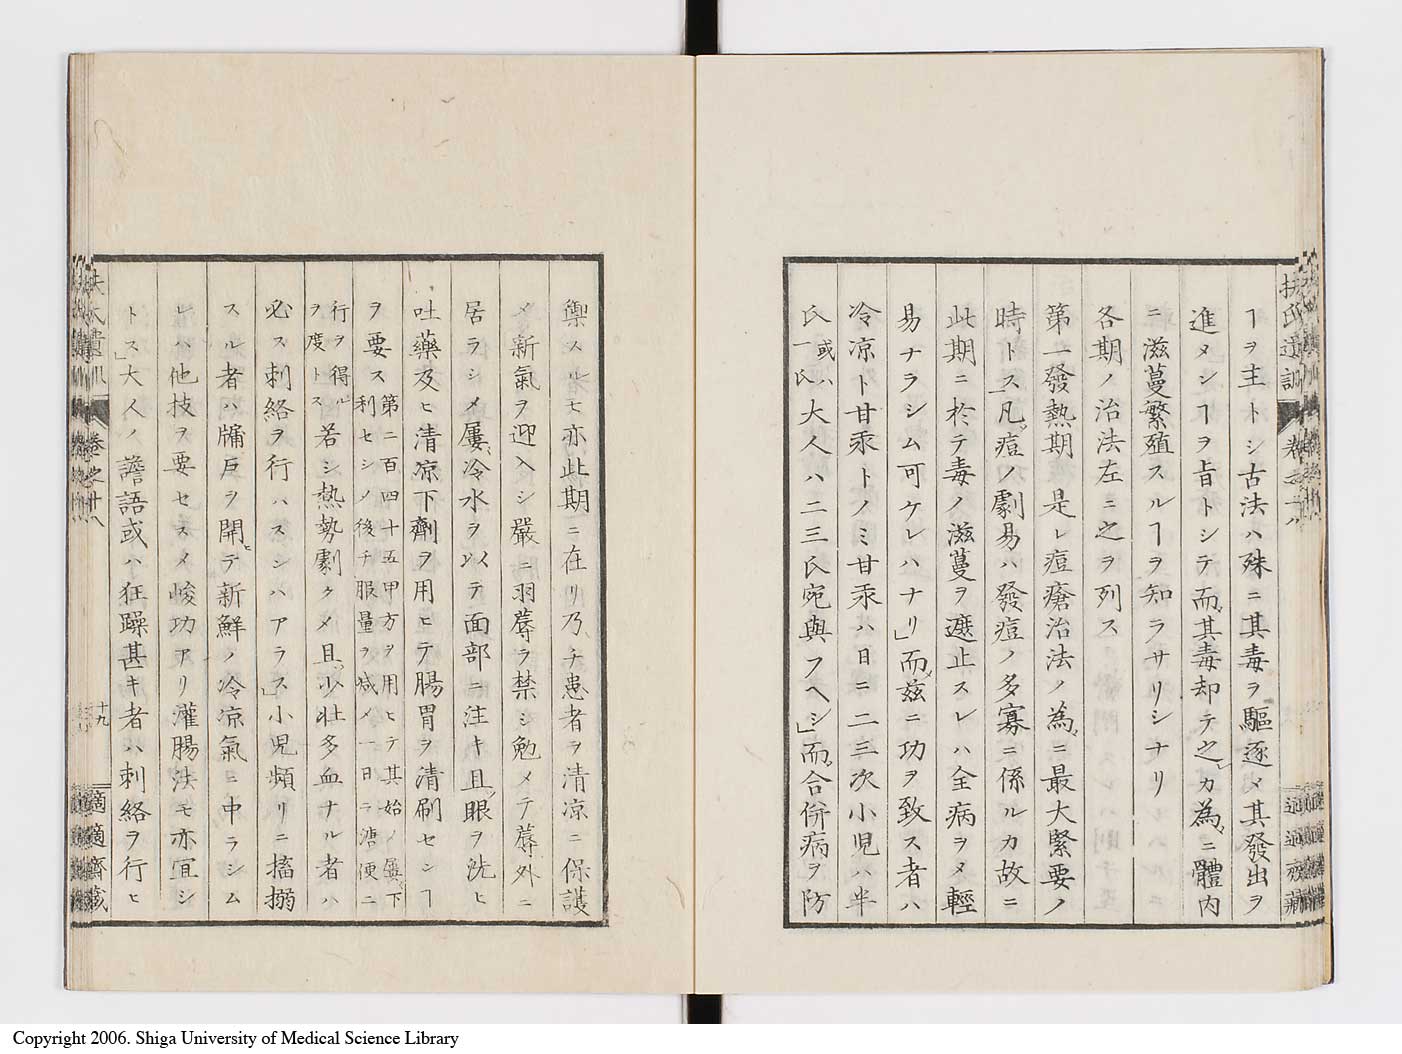 ヿヲ主トシ古法ハ殊ニ其毒ヲ驅逐メ其發出ヲ
進メシヿヲ旨トシテ而其毒却テ之カ為ニ體内
ニ滋蔓繁殖スルヿヲ知ラサリシナリ
各期ノ治法左ニ之ヲ列ス
第一發熱期 是レ痘瘡治法ノ為ニ最大緊要ノ
時トス」凡痘ノ劇易ハ發痘ノ多寡ニ係ルカ故ニ
此期ニ於テ毒ノ滋蔓ヲ遮止スレハ全病ヲメ輕
易ナラシム可ケレハナリ」而茲ニ功ヲ致ス者ハ
冷凉ト甘汞トノミ甘汞ハ日ニ二三次小児ハ半
氏或ハ一氏大人ハ二三氏宛與フヘシ」而合併病ヲ防
扶氏遺訓 卷之十八
適適齋藏
禦スルモ亦此期ニ在リ乃チ患者ヲ清凉ニ保護
メ新氣ヲ迎入シ嚴ニ羽蓐ヲ禁シ勉メテ蓐外ニ
居ラシメ屢冷水ヲ以テ面部ニ注キ且眼ヲ洗ヒ
吐藥及ヒ清凉下劑ヲ用ヒテ腸胃ヲ清刷センヿ
ヲ要ス第二百四十五甲方ヲ用ヒテ其始メ屢下
利セシメ後チ服量ヲ减メ一日ラ溏便二
行ヲ得ル
ヲ度トス若シ熱勢劇クメ且少壯多血ナル者ハ
必ス刺絡ヲ行ハスンハアラス」小児頻リニ搐搦
スル者ハ牖戸ヲ開テ新鮮ノ冷凉氣ニ中ラシム
レハ他技ヲ要セスメ峻功アリ灌腸法モ亦宜シ
トス」大人ノ譫語或ハ狂躁甚キ者ハ刺絡ヲ行ヒ
卷之十八
十九
適適齋藏
Copyright 2006. Shiga University of Medical Science Library